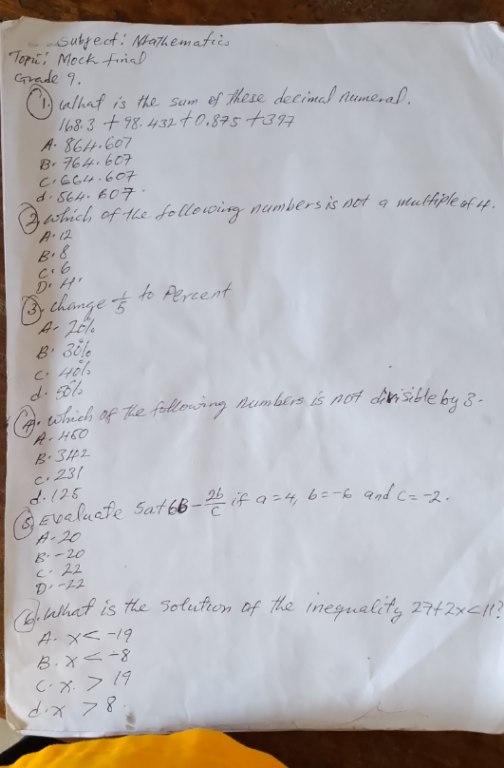 Subject: Mathematics
Topic: Mock final
Grade 9.
1. What is the sum of these decimal numeral.
168.3 + 98.432 + 0.875 + 397
A. 864.607
B. 764.607
C. 664.607
d. 564.607.
2. Which of the following numbers is not a multiple of 4.
A. 12
B. 8
C. 6
D. 4.
3. change 1/5 to Percent
A- 20%
B. 30%
C. 40%
d. 50%
4. Which of the following numbers is not divisible by 3-
A. 450
B. 342
C. 231
d. 125
5. Evaluate 5a+6B-2b/c if a=4, b=-6 and c=-2.
A-20
B--20
C. 22
D. -22
6. What is the solution of the inequality 27+2x<11?
A. x < -19
B. x < -8
C. x. > 19
d. x > 8.